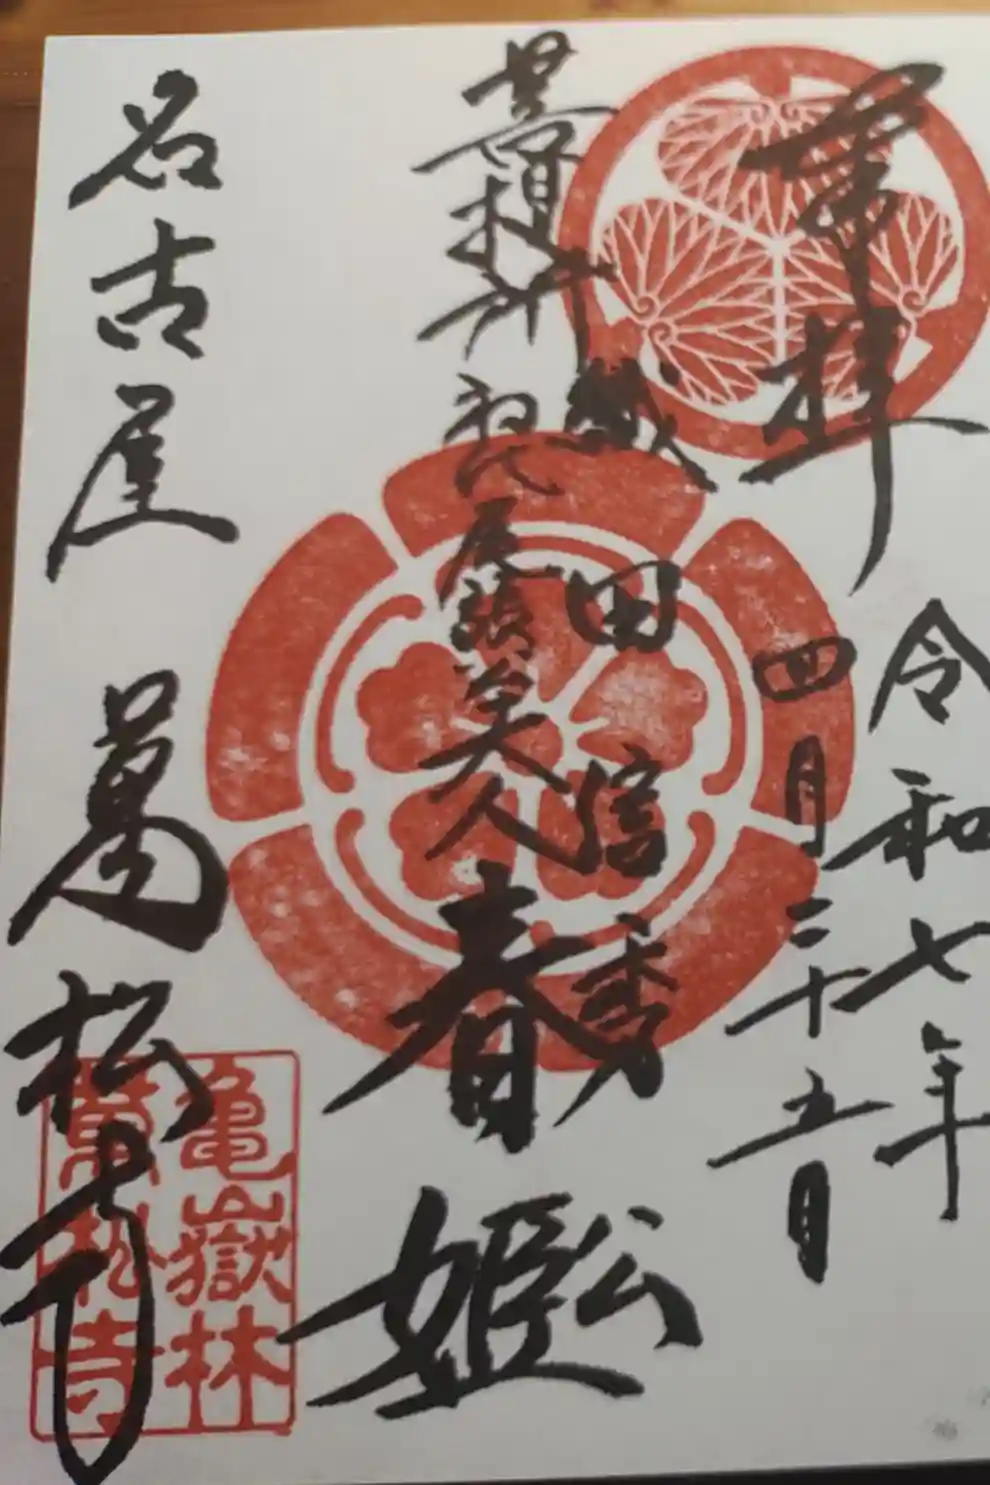 奉拝
令和七年
四月二十五日
織田信秀公
初代尾張美人春姫
名古屋 萬松寺
亀嶽林
萬松寺